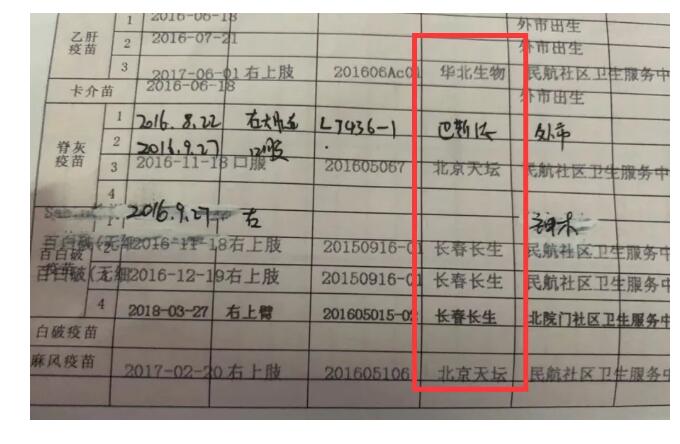 1 2016-06-18 外市出生
乙肝疫苗 2 2016-07-21 外市出生
3 2017-06-01 右上肢 201606Ac01 华北生物 民航社区卫生服务中
卡介苗 2016-06-18 外市出生
脊灰疫苗 1 2016.8.22 L7436-1 巴斯德 外市
2 2016.9.27 口服
3 2016-11-18 口服 201605067 北京天坛 民航社区卫生服务中
4
1 2016.9.27 右
百白破(无细 2 2016-11-18 右上肢 20150916-01 长春长生 民航社区卫生服务中
百白破(无细 2016-12-19 右上肢 20150916-01 长春长生 民航社区卫生服务中
4 2018-03-27 右上臂 201605015-02 长春长生 北院门社区卫生服务中
白破疫苗
麻风疫苗 2017-02-20 右上肢 201605106 北京天坛 民航社区卫生服务中